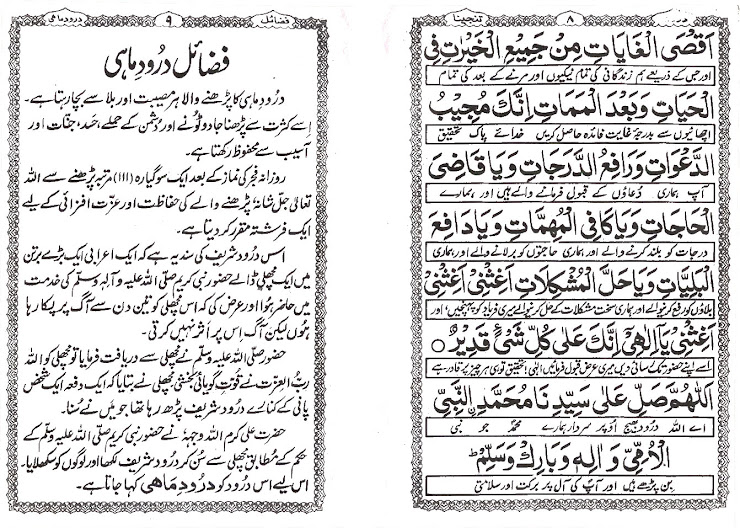 تنجینا
۸
اَقْصَی الْغَایَاتِ مِنْ جَمِیْعِ الْخَیْرٰتِ فِی
اور جس کے ذریعے ہم زندگانی کی تمام نیکیوں اور مرنے کے بعد کی تمام
الْحَیَاتِ وَبَعْدَ الْمَمَاتِ اِنَّكَ مُجِیْبُ
اچھائیوں سے بدرجۂ غایت فائدہ حاصل کریں خدائے پاک تحقیق
الدَّعْوَاتِ وَرَافِعُ الدَّرَجَاتِ وَیَا قَاضِیَ
آپ ہماری دُعاؤں کے قبول فرمانے والے ہیں اور ہمارے
الْحَاجَاتِ وَیَا كَافِیَ الْمُهِمَّاتِ وَیَا دَافِعَ
درجات کو بلند کرنے والے اور ہماری حاجتوں کو برلانے والے اور ہماری
الْبَلِیَّاتِ وَیَا حَلَّ الْمُشْكِلَاتِ اَغِثْنِیْ اَغِثْنِیْ
بلاؤں کو رفع کرنیوالے اور ہماری سخت مشکلات کے حل کرنیوالے میری فریاد کو پہنچیں اور
اَغِثْنِیْ یَا اِلٰهِیْ اِنَّكَ عَلٰی كُلِّ شَیْءٍ قَدِیْرٌ ○
اسے اپنے حضور تک رسائی دیں میری عرض قبول فرمائیں الٰہی! تحقیق تو ہی ہر چیز پر قادر ہے
اَللّٰهُمَّ صَلِّ عَلٰی سَیِّدِنَا مُحَمَّدِ نِ النَّبِیِّ
اے اللہ درود بھیج اُوپر سردار ہمارے محمدؐ جو نبی
الْاُمِّیِّ وَاٰلِهٖ وَبَارِكْ وَسَلِّمْ ط
بِن پڑھے ہیں اور آپؐ کی آل پر برکت اور سلامتی
فضائل
۹
درود ماہی
فضائل درُودِ ماہی
درُودِ ماہی کا پڑھنے والا ہر مصیبت اور بلا سے بچا رہتا ہے۔
اِسے کثرت سے پڑھنا جادو ٹُونے اور دشمن کے حملے، حَسَد، جنّات اور
آسیب سے محفوظ رکھتا ہے۔
روزانہ فجر کی نماز کے بعد ایک سو گیارہ (۱۱۱) مرتبہ پڑھنے سے اللہ
تعالیٰ جلّ شانہٗ پڑھنے والے کی حفاظت اور عزّت افزائی کے لیے
ایک فرشتہ مقرر کر دیتا ہے۔
اس درُود شریف کی سند یہ ہے کہ ایک اعرابی ایک بڑے برتن
میں ایک مچھلی ڈالے حضور نبی کریم صلّی اللہ علیہ و آلہٖ وسلّم کی خدمت
میں حاضر ہُوا اور عرض کی کہ اس مچھلی کو تین دن سے آگ پر پکا رہا
ہُوں لیکن آگ اِس پر اَثر نہیں کرتی۔
حضور صلّی اللہ علیہ وسلّم نے مچھلی سے دریافت فرمایا تو مچھلی کو اللہ
ربُّ العزّت نے قوّتِ گویائی بخشی مچھلی نے بتایا کہ ایک دفعہ ایک شخص
پانی کے کنارے درُود شریف پڑھ رہا تھا جو میں نے سُنا۔
حضرت علی کرّم اللہ وجہہٗ نے حضور نبی کریم صلّی اللہ علیہ وسلّم کے
حُکم کے مُطابق مچھلی سے سُن کر درود شریف لکھا اور لوگوں کو سکھلایا۔
اس لیے اس درُود کو درُودِ ماھی کہا جاتا ہے۔